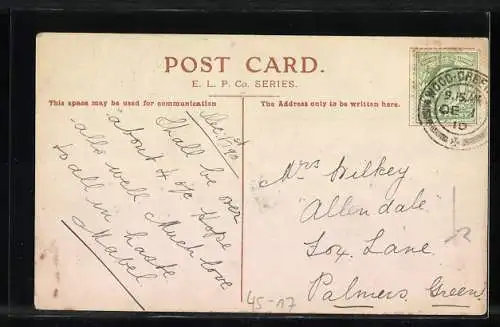 POST CARD.
E. L. P. Co. SERIES.
This space may be used for communication
The Address only to be written here.
WOOD-GREEN
9.15 AM
DE
10
Dec. 1st
Shall be over
about 4 o/c Hope
alls well Much love
to all in haste
Mabel
Mrs Wilkey
Allendale
Fox Lane
Palmers Green
45-17